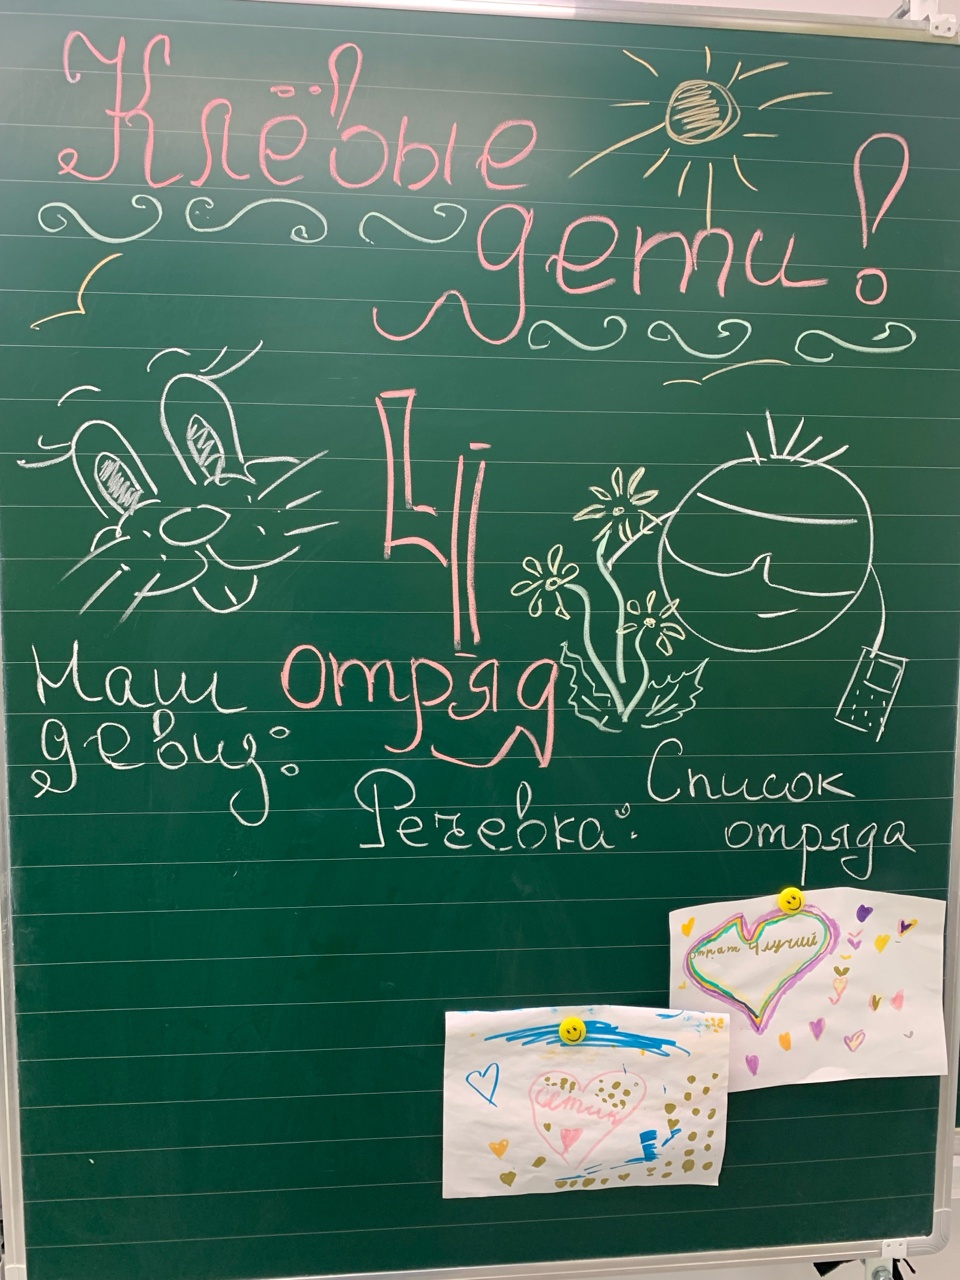 Клёвые
дети!
4
отряд
Наш
девиз:
Речевка:
Список
отряда
4 лучший